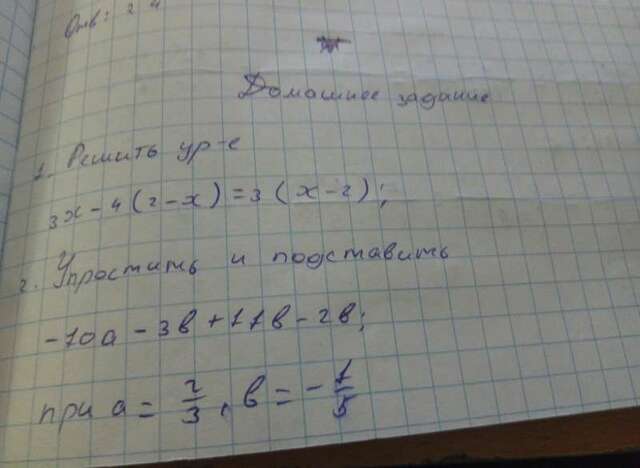 Отв: 2 4
Домашнее задание
1. Решить ур-е
3x - 4(2-x) = 3(x-2);
2. Упростить и подставить
-10a - 3b + 11b - 2b;
при a = 2/3, b = -1/5